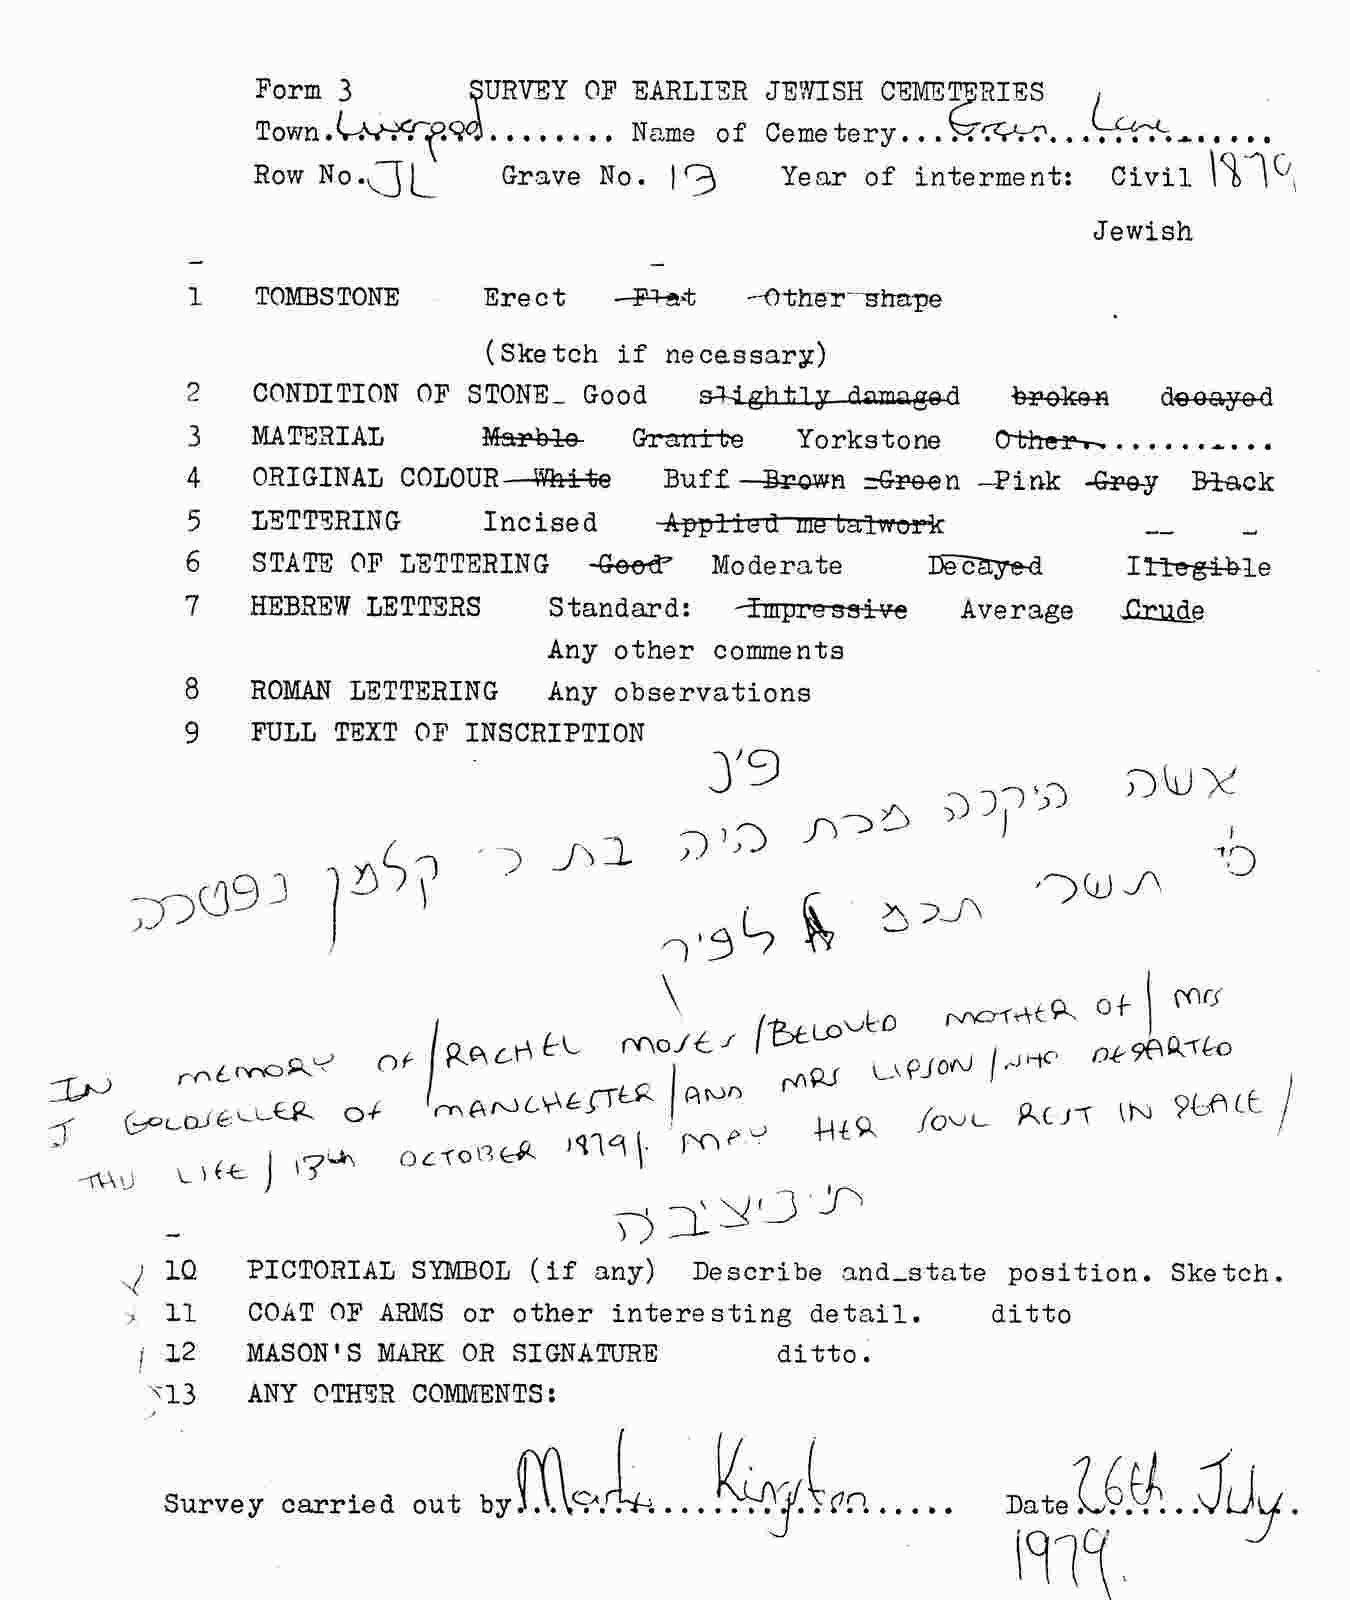 Form 3 SURVEY OF EARLIER JEWISH CEMETERIES
Town.Liverpool........ Name of Cemetery...Green Lane......
Row No. JL Grave No. 13 Year of interment: Civil 1879
Jewish
1 TOMBSTONE Erect Flat Other shape
(Sketch if necessary)
2 CONDITION OF STONE_ Good slightly damaged broken decayed
3 MATERIAL Marble Granite Yorkstone Other............
4 ORIGINAL COLOUR White Buff Brown Green Pink Grey Black
5 LETTERING Incised Applied metalwork
6 STATE OF LETTERING Good Moderate Decayed Illegible
7 HEBREW LETTERS Standard: Impressive Average Crude
Any other comments
8 ROMAN LETTERING Any observations
9 FULL TEXT OF INSCRIPTION
פ'נ
אשה היקרה מרת היה בת ר' קלמן נפטרה
כ'י תשרי תרמ לפ'ק
IN MEMORY OF / RACHEL MOSES / BELOVED MOTHER OF / MRS
J GOLDSELLER OF MANCHESTER / AND MRS LIPSON / WHO DEPARTED
THIS LIFE / 13th OCTOBER 1879 /. MAY HER SOUL REST IN PEACE /
ת'נ'צ'ב'ה
10 PICTORIAL SYMBOL (if any) Describe and_state position. Sketch.
11 COAT OF ARMS or other interesting detail. ditto
12 MASON'S MARK OR SIGNATURE ditto.
13 ANY OTHER COMMENTS:
Survey carried out by Martin Kingston..... Date 26th July
1979.